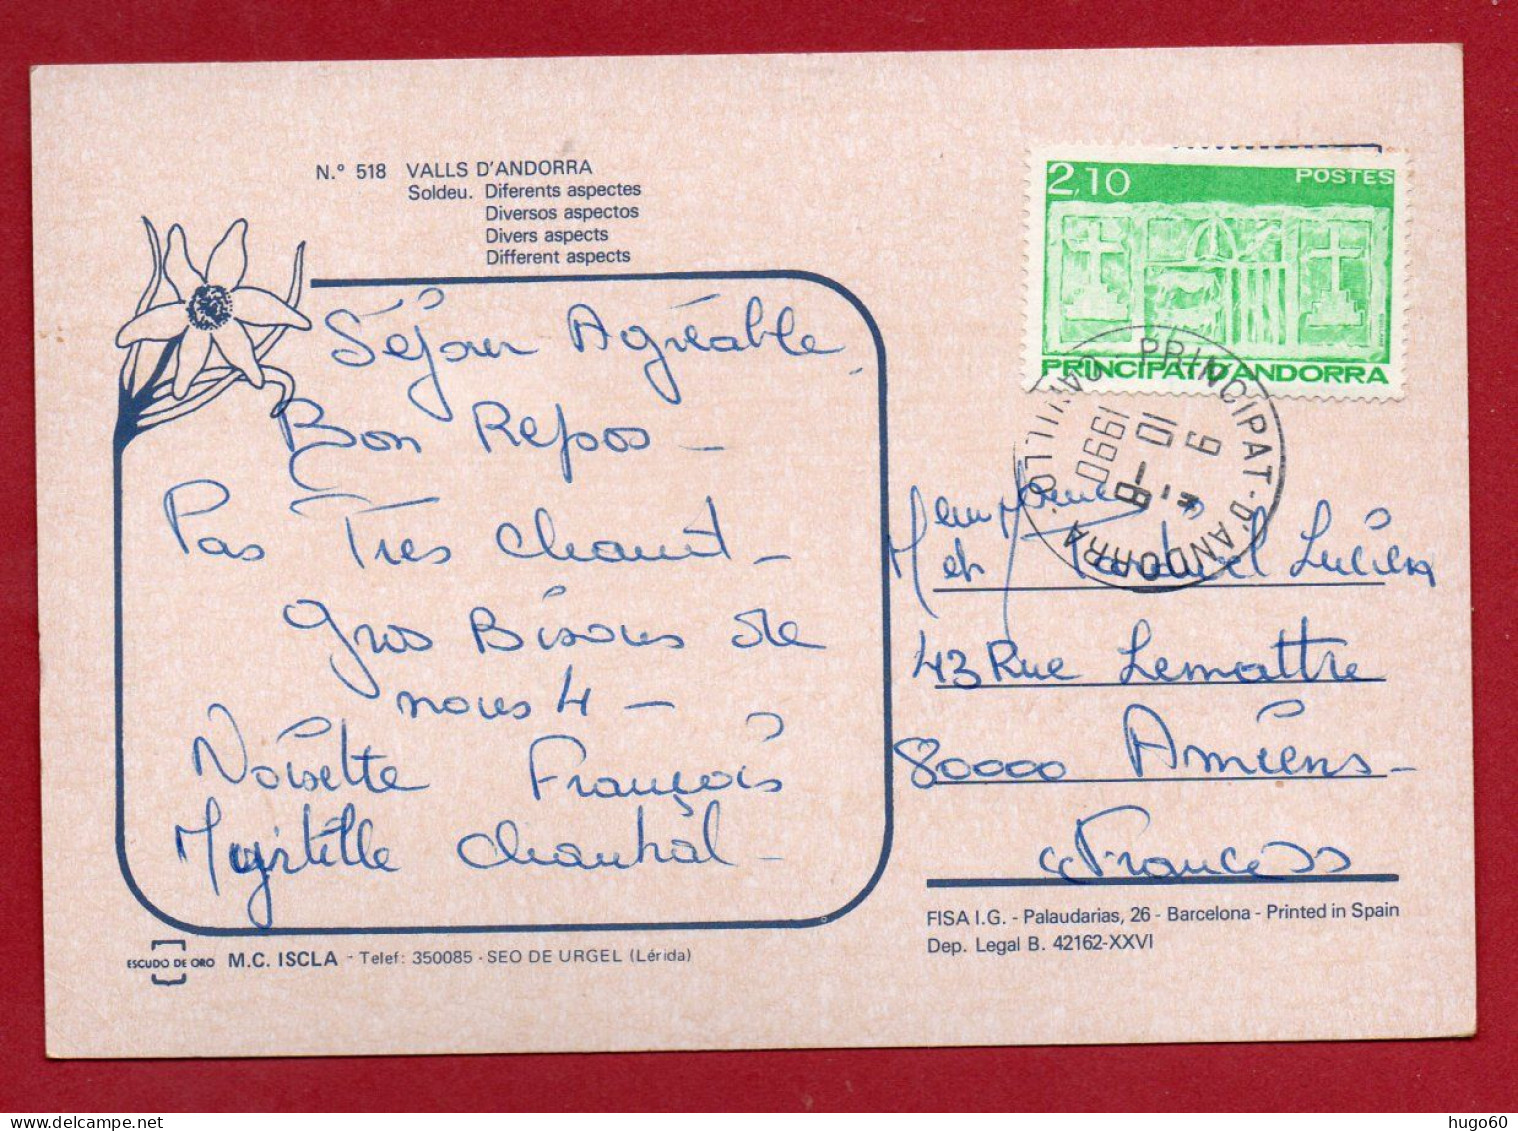 N.º 518 VALLS D'ANDORRA
Soldeu. Diferents aspectes
Diversos aspectos
Divers aspects
Different aspects
2,10 POSTES
PRINCIPAT D'ANDORRA
PRINCIPAT-D'ANDORRA
CANILLO
9 6
10
1990
Séjour Agréable
Bon Repos —
Pas Tres chaud —
Gros Bisous de
nous 4 —
Noisette François
Myrtille Chantal —
et Lucien
43 Rue Lemattre
80000 Amiens —
"France"
FISA I.G. - Palaudarias, 26 - Barcelona - Printed in Spain
Dep. Legal B. 42162-XXVI
ESCUDO DE ORO M.C. ISCLA - Telef: 350085 - SEO DE URGEL (Lérida)
hugo60